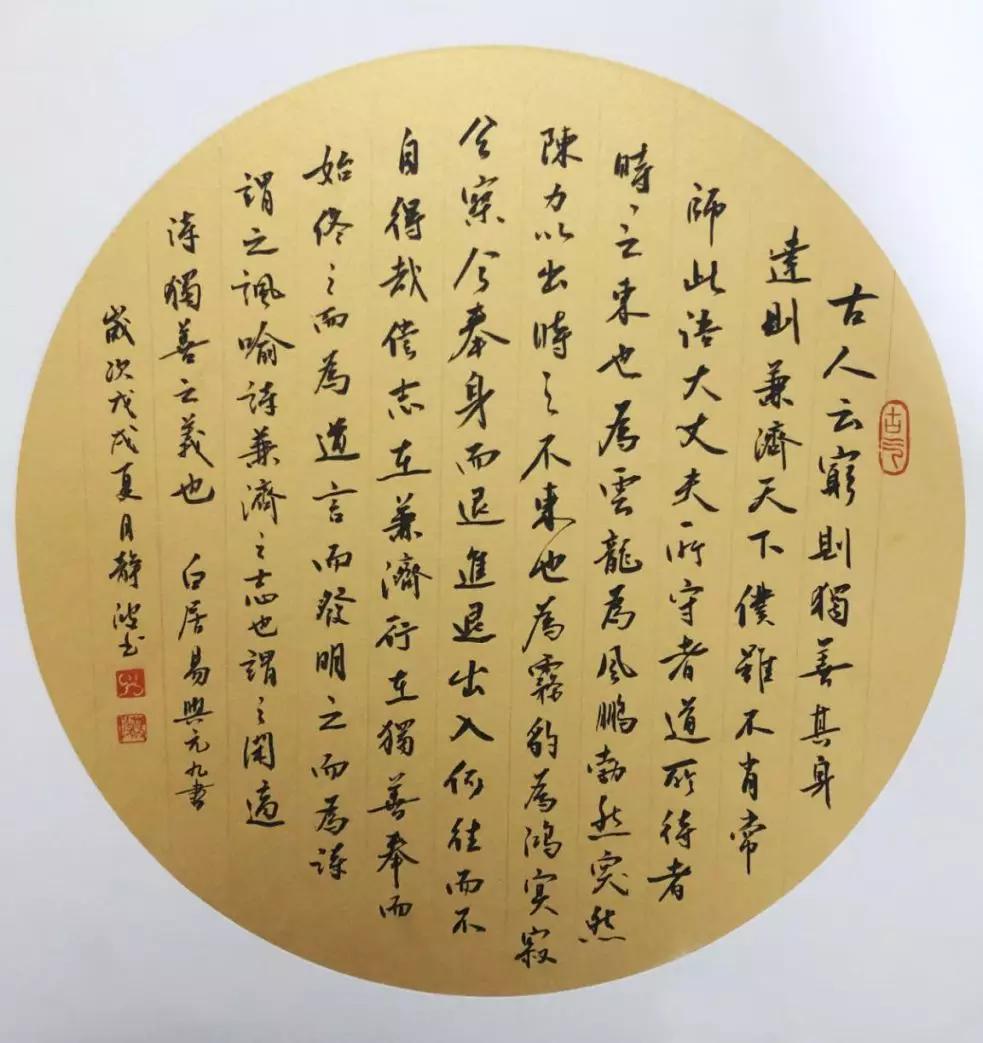 古人云窮則獨善其身
達則兼濟天下僕雖不肖常
師此語大丈夫所守者道所待者
時時之來也為雲龍為風鵬勃然突然
陳力以出時之不來也為霧豹為鴻冥寂
兮寥兮奉身而退進退出入何往而不
自得哉僕志在兼濟行在獨善奉而
始終之而為道言而發明之而為詩
謂之諷喻詩兼濟之志也謂之閑適
詩獨善之義也 白居易與元九書
歲次戊戌夏月靜波书